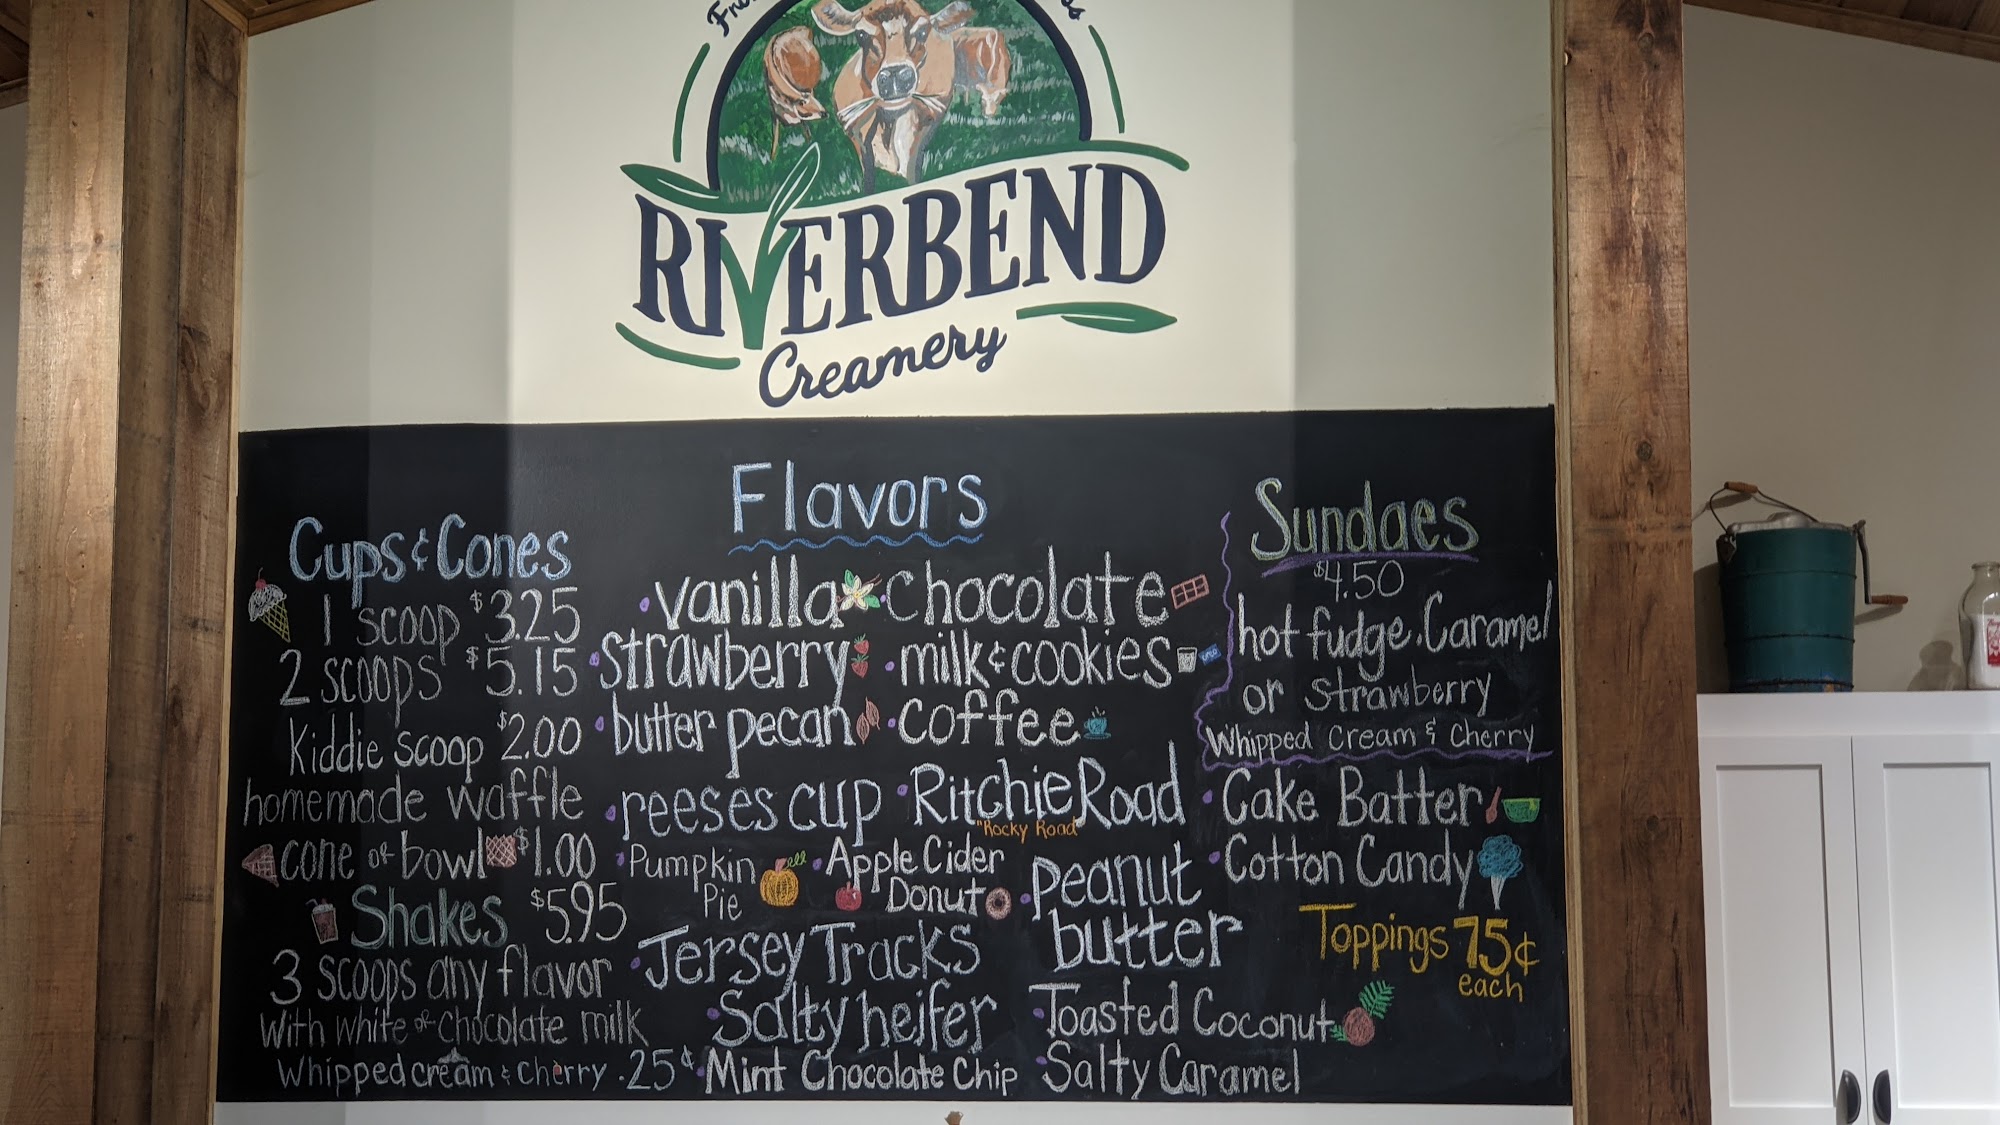 RIVERBEND
Creamery
Cups & Cones
1 scoop $3.25
2 scoops $5.15
Kiddie scoop $2.00
homemade waffle
cone or bowl $1.00
Shakes $5.95
3 scoops any flavor
With white or chocolate milk
Whipped cream & cherry .25¢
Flavors
• vanilla • chocolate
• strawberry • milk & cookies
• butter pecan • coffee
• reeses cup • Ritchie Road
"Rocky Road"
• Pumpkin Pie
• Apple Cider Donut
• peanut butter
• Jersey Tracks
• Salty heifer
• Toasted Coconut
• Mint Chocolate Chip
• Salty Caramel
Sundaes
$4.50
hot fudge. Caramel
or Strawberry
Whipped Cream & Cherry
• Cake Batter
• Cotton Candy
Toppings 75¢
each